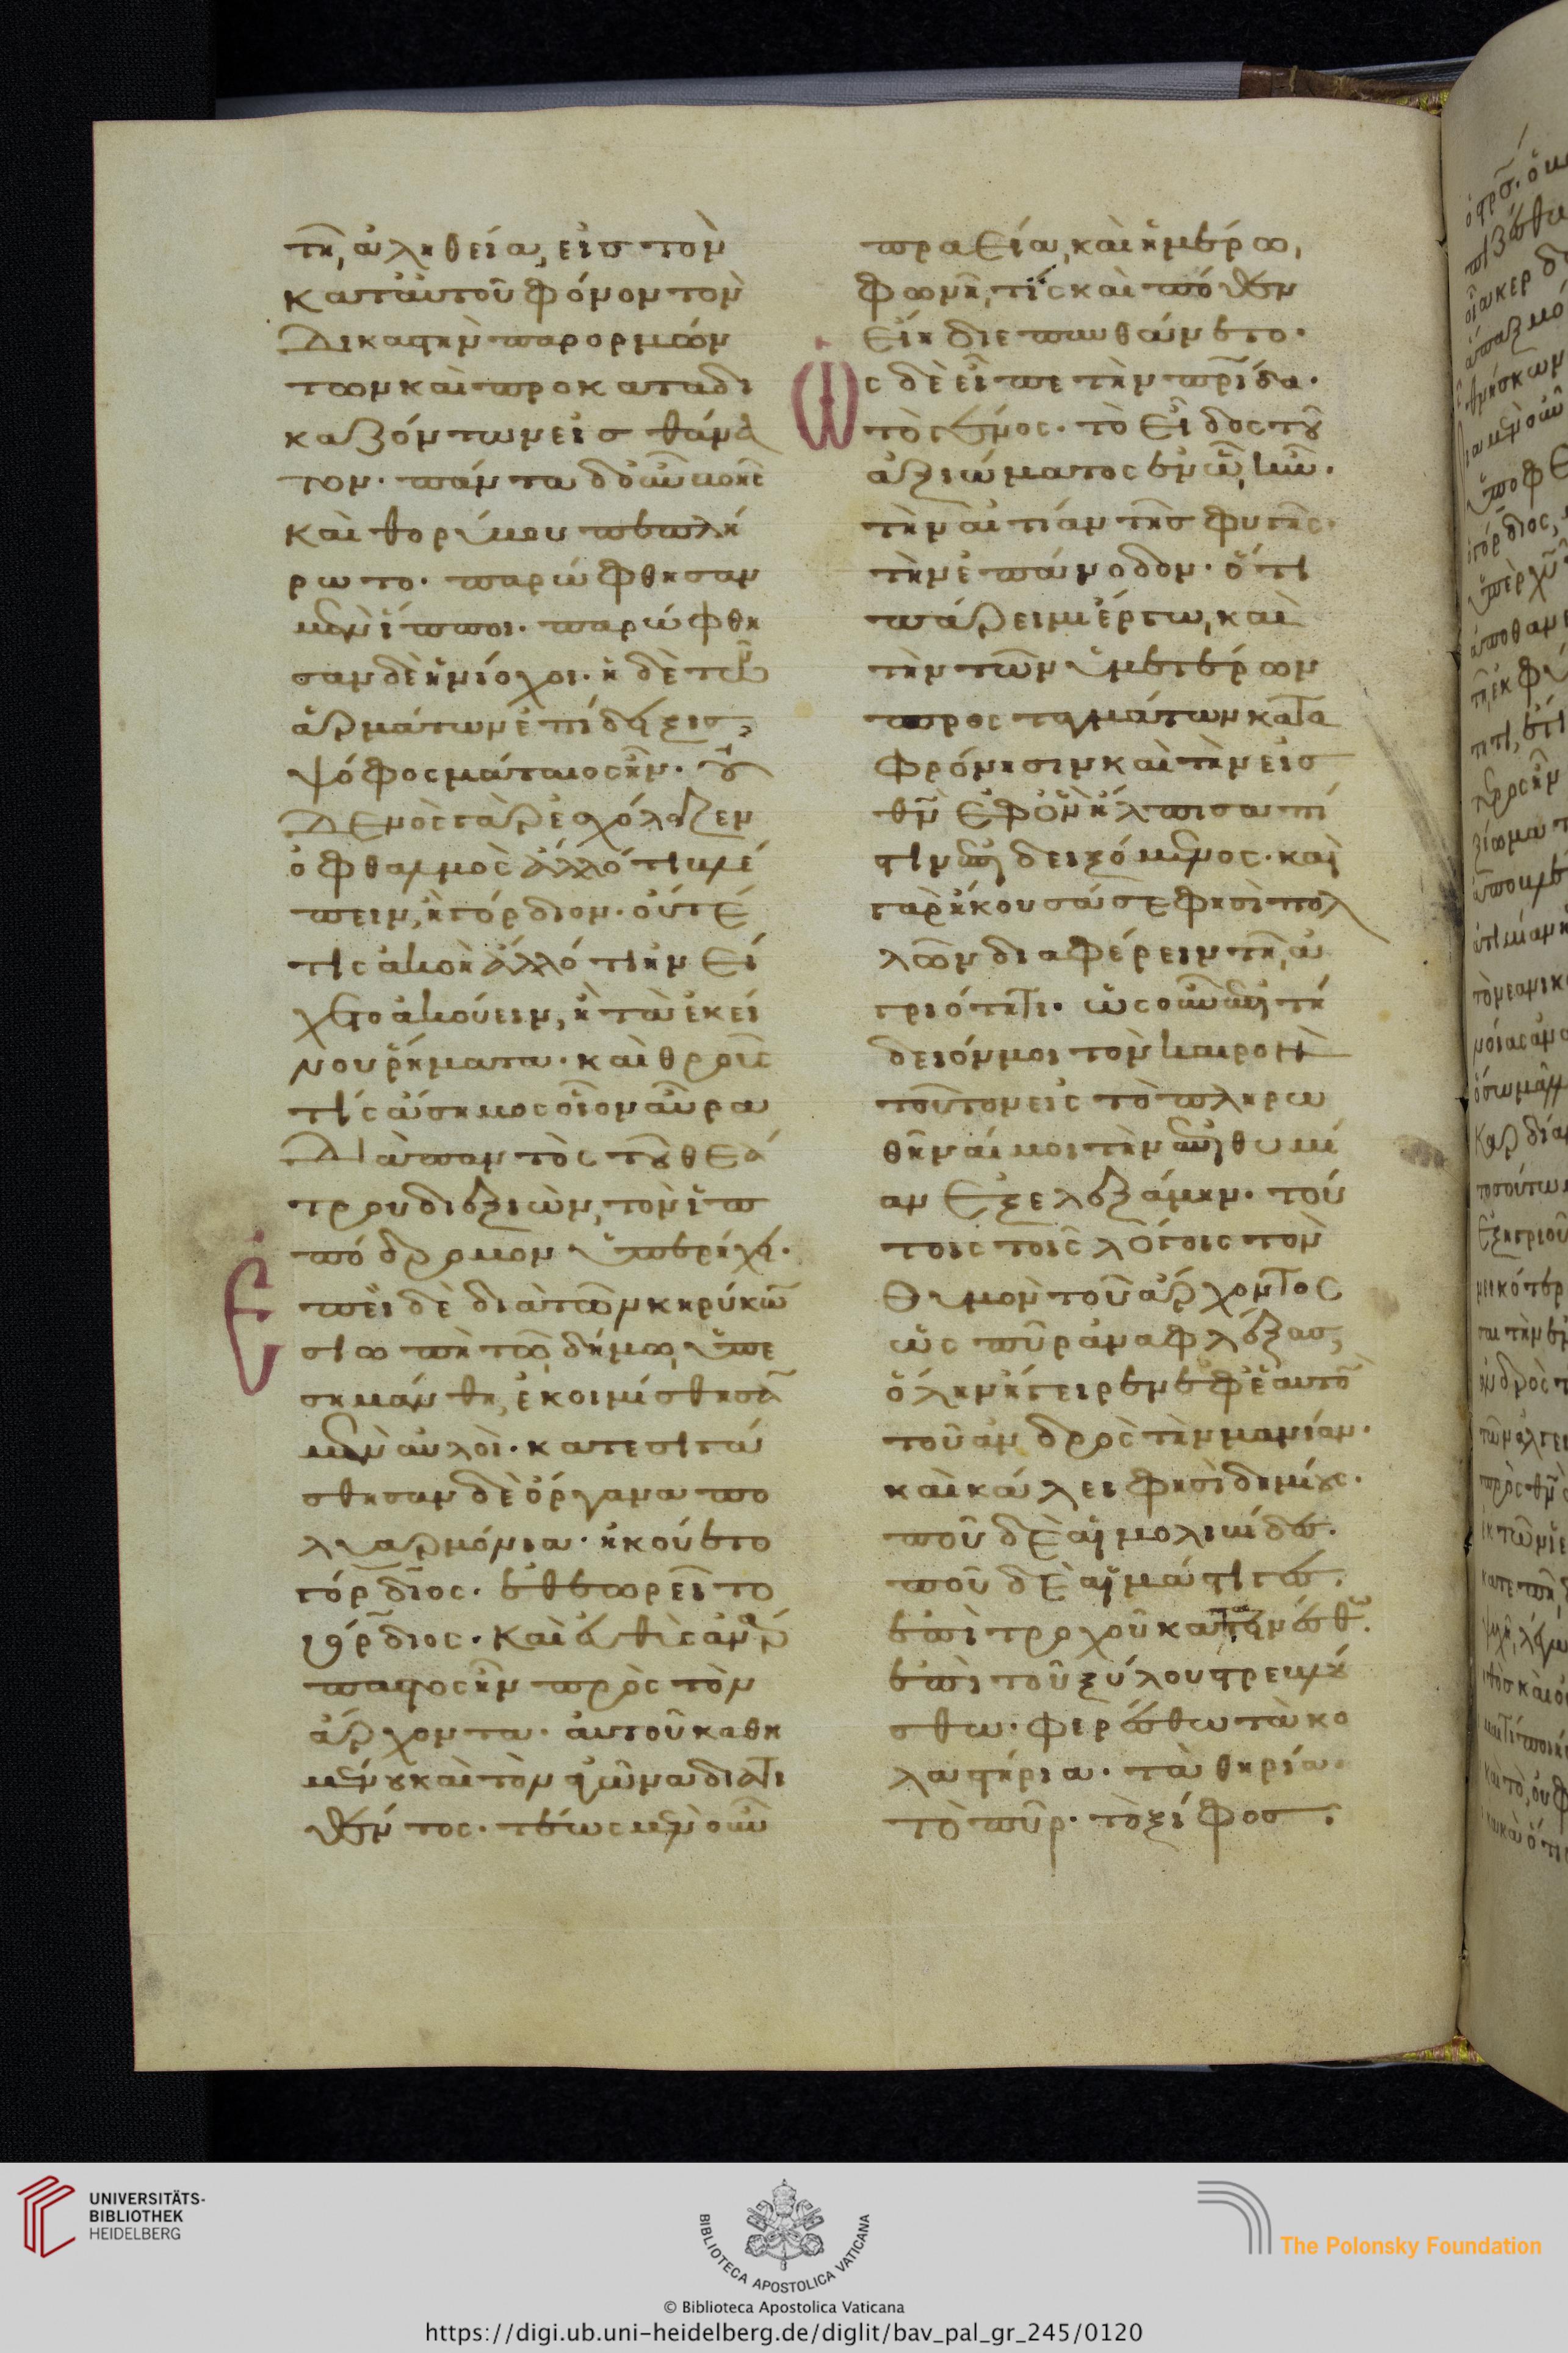 τῆ ἀληθεία, εἰς τὸν
κατ' αὐτοῦ φόνον τὸν
δικαστὴν παρορμών
των καὶ προκαταδι
καζόντων εἰς θάνα
τον. πάντα δ' οὖν βοῆς
καὶ θορύβου πεπλή
ρωτο. παρώφθησαν
μὲν ἵπποι. παρώφθη
σαν δὲ ἡνίοχοι. ἡ δὲ τῶν
ἁρμάτων ἐπίδειξις,
ψόφος μάταιος ἦν. οὐ
δενὸς γὰρ ἐσχόλαζεν
ὀφθαλμὸς ἄλλό τι βλέ
πειν, ἢ γόρδιον. οὔτέ
τις ἀκοὴ ἄλλό τι ἠνεί
χετο ἀκούειν, ἢ τὰ ἐκεί
νου ῥήματα. καὶ θροῦς
τίς ἄσημος οἷον αὔρα
διὰ παντὸς τοῦ θεά
τρου διεξιὼν, τὸν ἱπ
πόδρομον ὑπερήχει.
Ἐπεὶ δὲ διὰ τῶν κηρύκων
σιωπὴ τῶ δήμω ὑπε
σημάνθη, ἐκοιμίσθησαν
μὲν αὐλοί. κατεσιγά
σθησαν δὲ ὄργανα πο
λυαρμόνια. ἠκούετο
γόρδιος. ἐθεωρεῖτο
γόρδιος. καὶ εὐθὺς ἀνάρ
παστος ἦν πρὸς τὸν
ἄρχοντα. αὐτοῦ καθη
μένου καὶ τὸν ἀγῶνα διατι
θέντος. τέως μὲν οὖν
πραεία, καὶ ἡμέρω,
φωνῆ, τίς καὶ πόθεν
εἴη διεπυνθάνετο.
Ὡς δὲ εἶπε τὴν πρίδα.
τὸ γένος. τὸ εἶδος τοῦ
ἀξιώματος ἐν ὧ ἦν.
τὴν αἰτίαν τῆς φυγῆς.
τὴν ἐπάνοδον. ὅτι
πάρειμι ἔργω, καὶ
τὴν τῶν ὑμετέρων
προσταγμάτων κατα
φρόνησιν καὶ τὴν εἰς
θν ἐφ' ὃν ἤλπισα πί
στιν ἐνδειξόμενος. καὶ
γὰρ ἤκουσά σε φησὶ πολ
λῶν διαφέρειν τῆ ἀ
γριότητι. ὡς οὖν ἐπιτή
δειόν μοι τὸν καιρὸν
τοῦτον εἰς τὸ πληρω
θῆναί μοι τὴν ἐπιθυμί
αν ἐξελεξάμην. τού
τοις τοῖς λόγοις τὸν
θυμὸν τοῦ ἄρχοντος
ὡς πῦρ ἀναφλέξας,
ὅλην ἤγειρεν ἐφ' ἑαυτὸν
τοῦ ἀνδρὸς τὴν μανίαν.
καὶ κάλει φησὶ δημίους.
ποῦ δὲ αἱ μολιβίδες.
ποῦ δὲ αἱ μάστιγες.
ἐπὶ τροχοῦ κατατεινέσθω.
ἐπὶ τοῦ ξύλου στρεβλού
σθω. φερέσθω τὰ κο
λαστήρια. τὰ θηρία.
τὸ πῦρ. τὸ ξίφος.
UNIVERSITÄTS-
BIBLIOTHEK
HEIDELBERG
BIBLIOTECA APOSTOLICA VATICANA
The Polonsky Foundation
© Biblioteca Apostolica Vaticana
https://digi.ub.uni-heidelberg.de/diglit/bav_pal_gr_245/0120